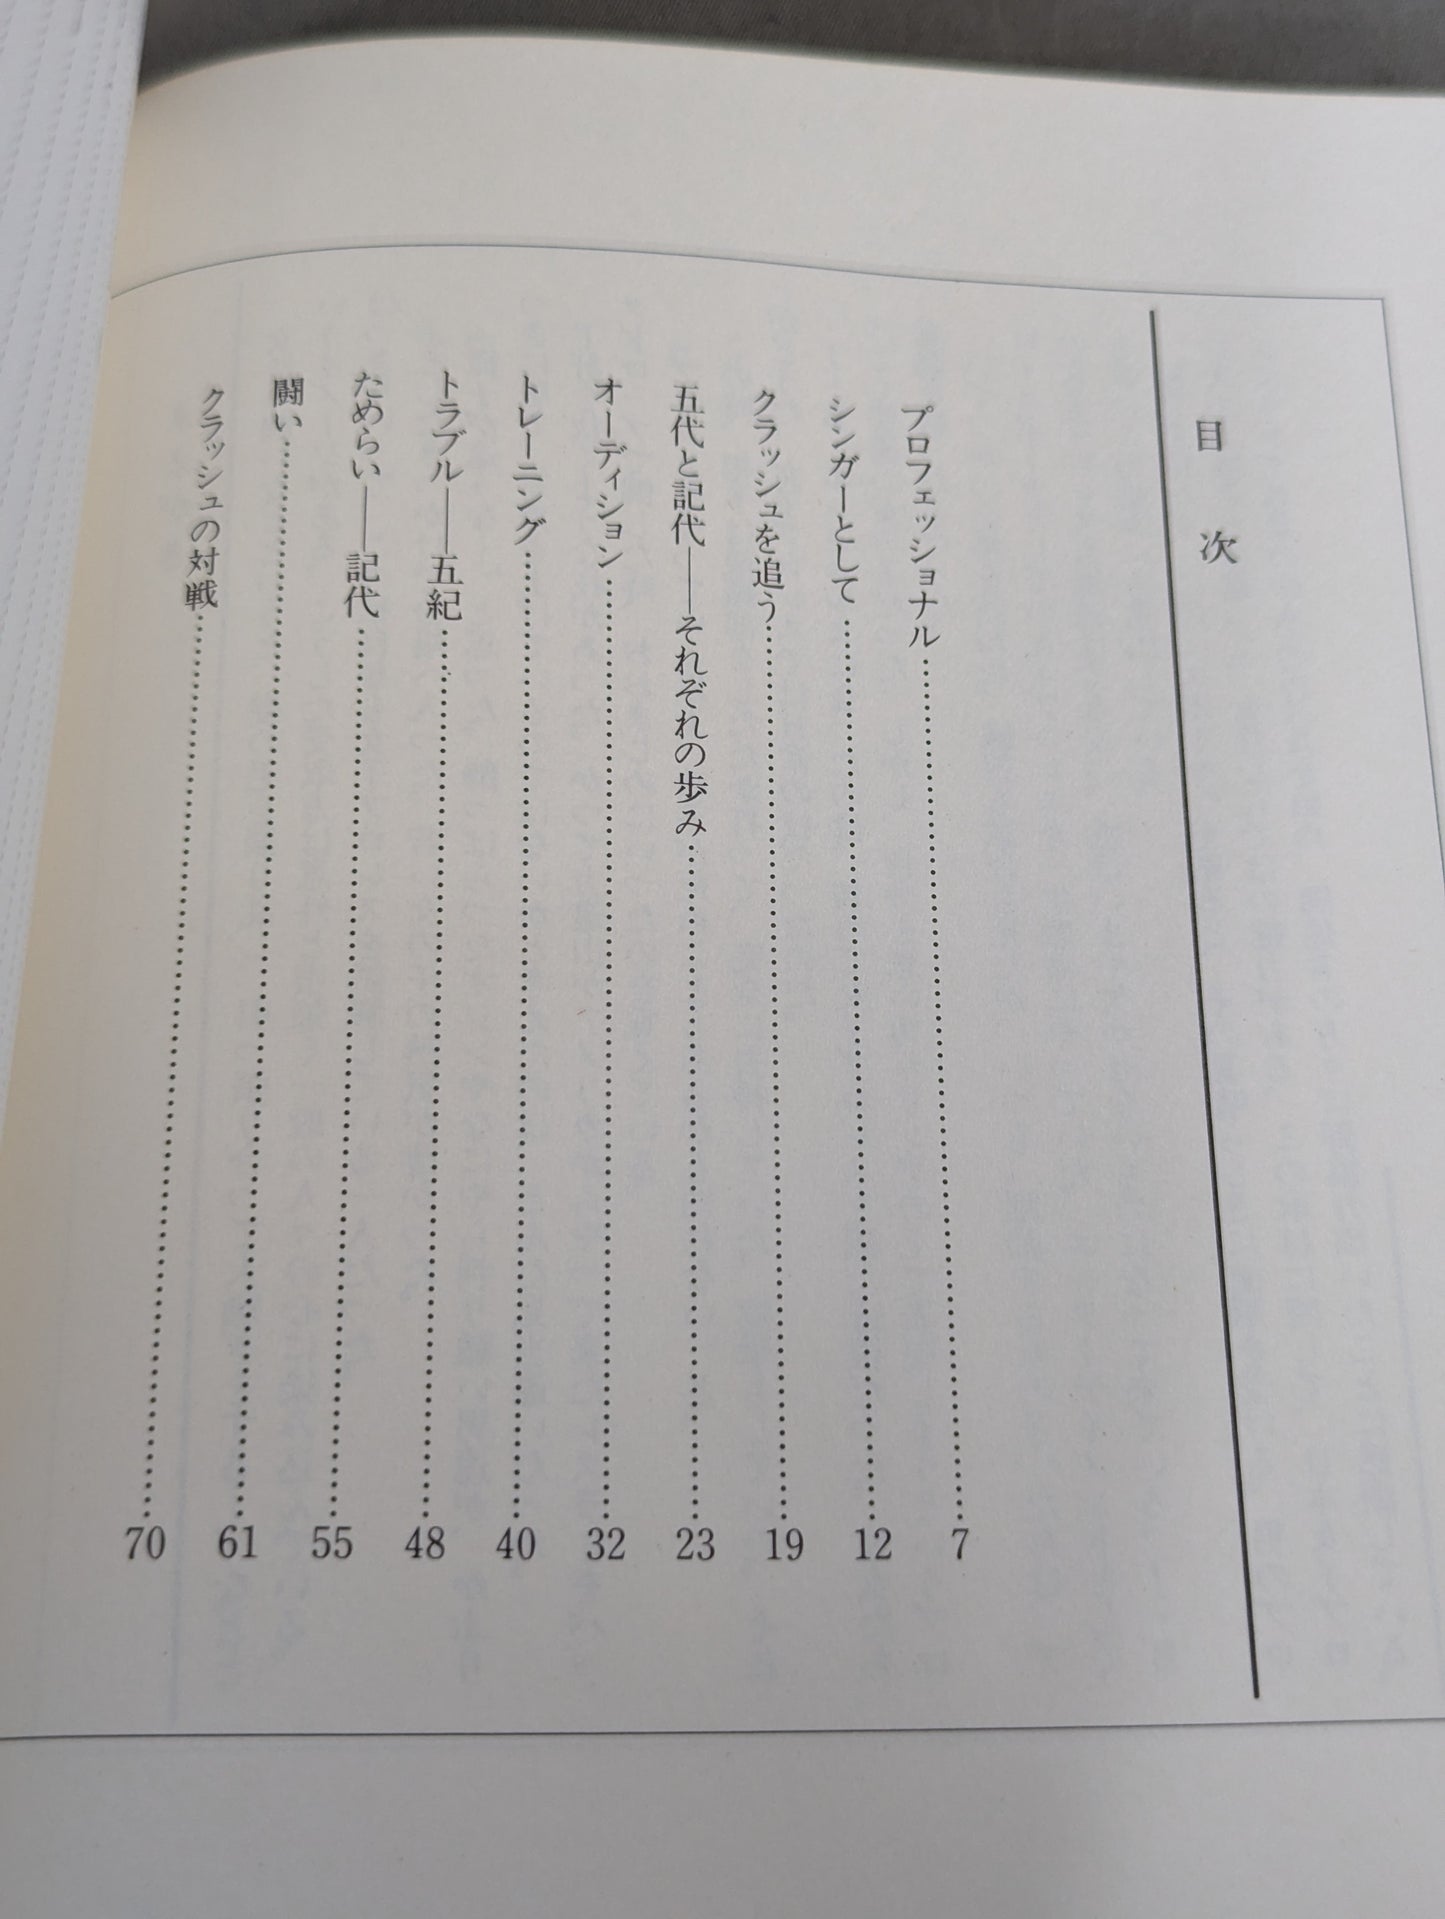 目次
プロフェッショナル……………………7
シンガーとして……………………12
クラッシュを追う……………………19
五代と記代――それぞれの歩み……………………23
オーディション……………………32
トレーニング……………………40
トラブル――五紀……………………48
ためらい――記代……………………55
闘い……………………61
クラッシュの対戦……………………70